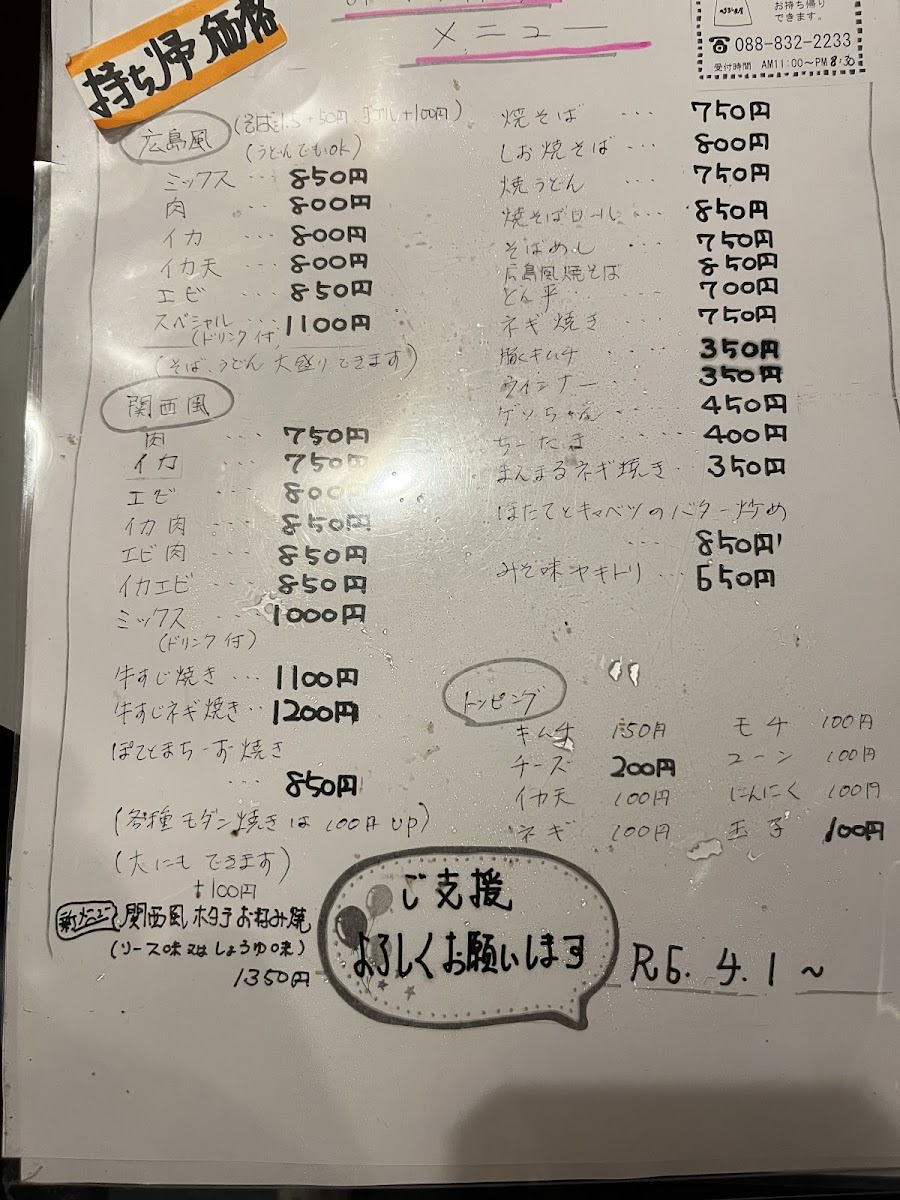 持ち帰り価格
メニュー
お持ち帰り
できます。
☎088-832-2233
受付時間 AM11:00〜PM8:30
広島風
(そば1.5 +50円 ダブル+100円)
(うどんでもOK)
ミックス ・・・ 850円
肉 ・・ 800円
イカ ・・・ 800円
イカ天 ・・・ 800円
エビ ・・・ 850円
スペシャル ・・・ 1100円
(ドリンク付)
(そば、うどん 大盛りできます)
関西風
肉 ・・・ 750円
イカ ・・・ 750円
エビ ・・・ 800
イカ肉 ・・・ 850円
エビ肉 ・・・ 850円
イカエビ ・・・ 850円
ミックス ・・・ 1000円
(ドリンク付)
牛すじ焼き ・・・ 1100円
牛すじネギ焼き ・・ 1200円
ぽてとまちーず焼き
・・・ 850円
(各種モダン焼きは 100円 UP)
(大にもできます)
+100円
新メニュー 関西風 ホタテ お好み焼
(ソース味又はしょうゆ味)
1350円
焼そば ・・・ 750円
しお焼そば ・・・ 800円
焼うどん ・・・ 750円
焼そばロール ・・・ 850円
そばめし ・・・ 750円
広島風焼そば 850円
とん平 ・・・ 700円
ネギ焼き ・・・ 750円
豚キムチ ・・・ 350円
ウインナー ・・・ 350円
ゲソちゃん ・・・ 450円
ちーたま ・・・ 400円
まんまるネギ焼き ・・ 350円
ほたてとキャベツのバター炒め
・・・ 850円
みそ味ヤキトリ ・・・ 650円
トッピング
キムチ 150円 モチ 100円
チーズ 200円 コーン 100円
イカ天 100円 にんにく 100円
ネギ 100円 玉子 100円
ご支援
よろしくお願いします
R6. 4. 1 〜